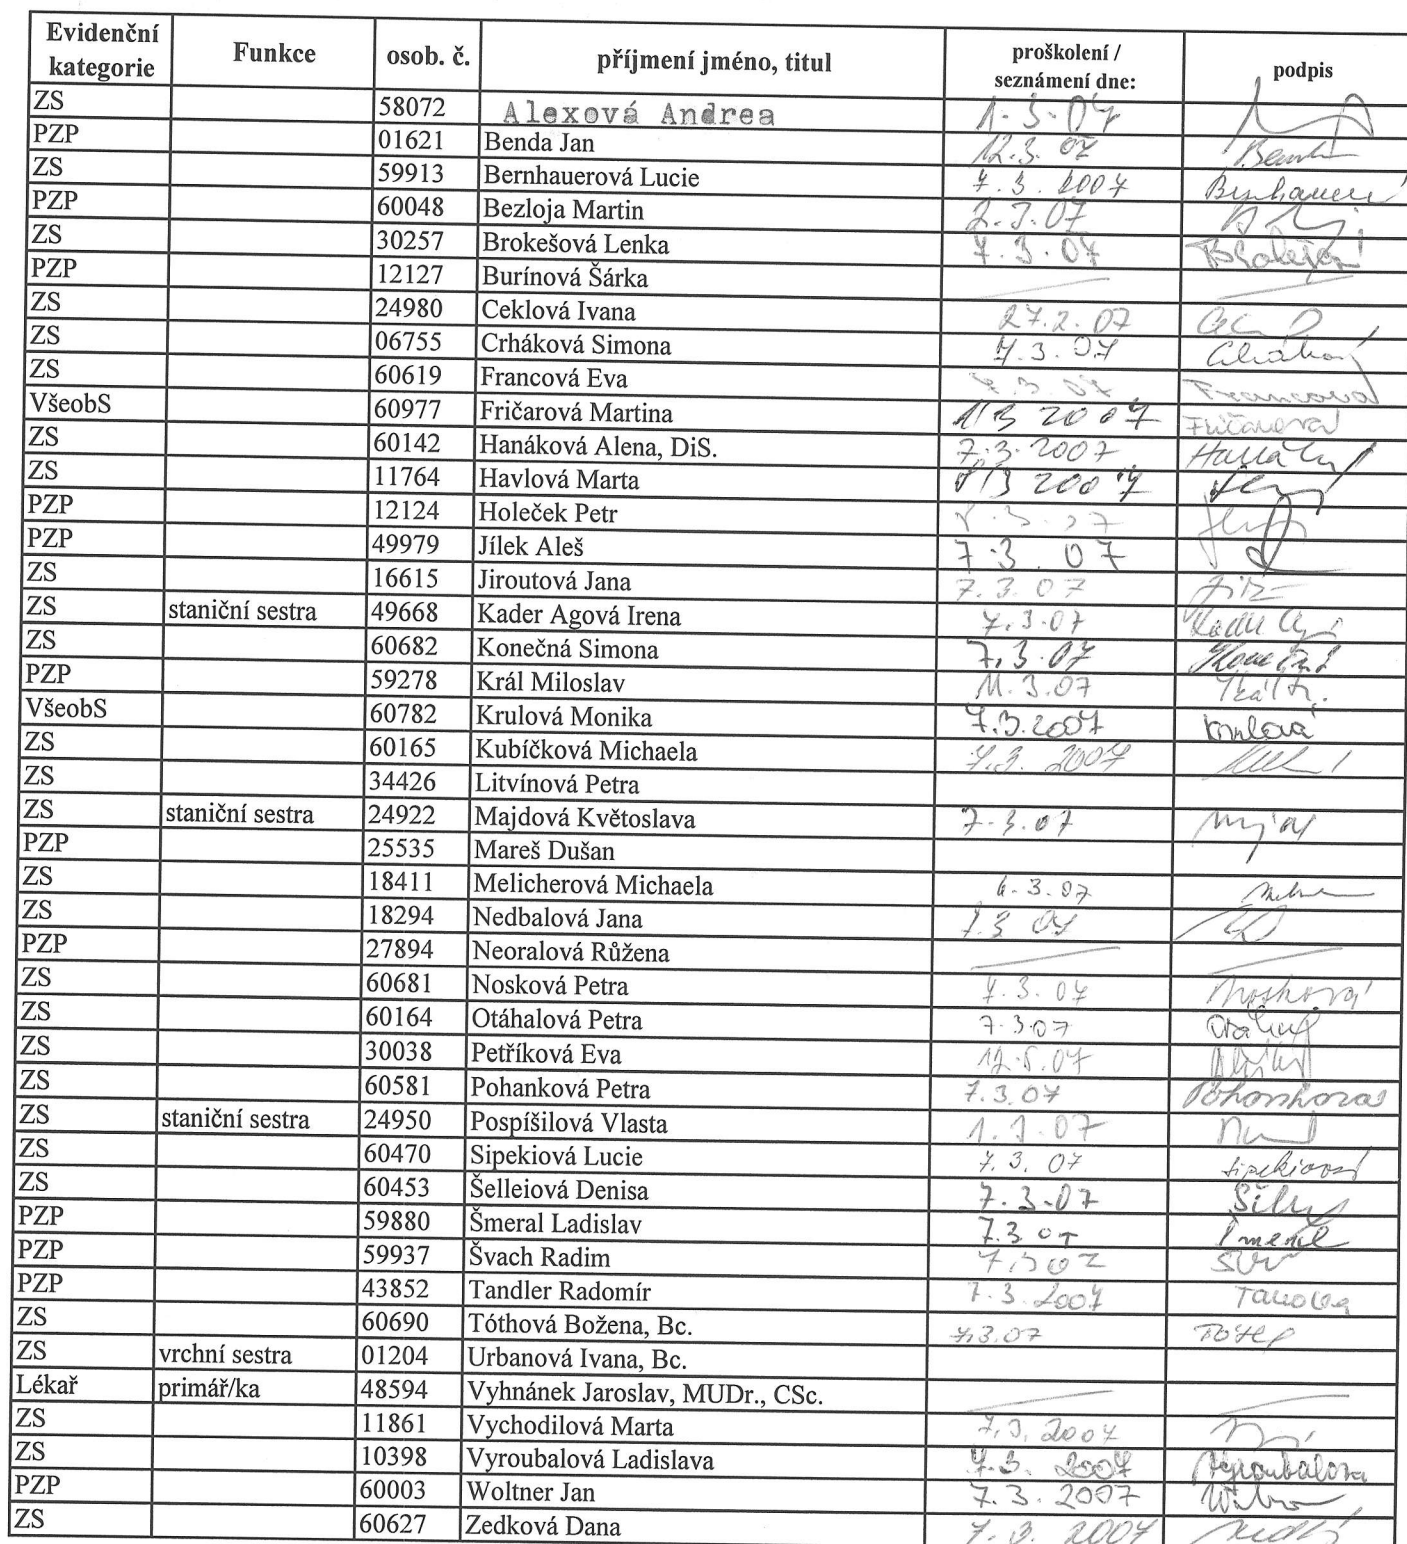 Evidenční kategorie Funkce osob. č. příjmení jméno, titul proškolení / seznámení dne: podpis
ZS 58072 Alexová Andrea 1.3.07
PZP 01621 Benda Jan 12.3.07
ZS 59913 Bernhauerová Lucie 7.3.2007
PZP 60048 Bezloja Martin 2.3.07
ZS 30257 Brokešová Lenka 7.3.07
PZP 12127 Burínová Šárka
ZS 24980 Ceklová Ivana 27.2.07
ZS 06755 Crháková Simona 7.3.07
ZS 60619 Francová Eva 7.3.07 Francová
VšeobS 60977 Fričarová Martina 1/3 2007 Fričarová
ZS 60142 Hanáková Alena, DiS. 7.3.2007
ZS 11764 Havlová Marta
PZP 12124 Holeček Petr
PZP 49979 Jílek Aleš 7.3.07
ZS 16615 Jiroutová Jana 7.3.07
ZS staniční sestra 49668 Kader Agová Irena 7.3.07
ZS 60682 Konečná Simona 7.3.07
PZP 59278 Král Miloslav 11.3.07
VšeobS 60782 Krulová Monika 7.3.2007 Krulová
ZS 60165 Kubíčková Michaela 7.3.2007
ZS 34426 Litvínová Petra
ZS staniční sestra 24922 Majdová Květoslava 7.3.07
PZP 25535 Mareš Dušan
ZS 18411 Melicherová Michaela 6.3.07
ZS 18294 Nedbalová Jana 7.3 07
PZP 27894 Neoralová Růžena
ZS 60681 Nosková Petra 7.3.07 Nosková
ZS 60164 Otáhalová Petra 7.3.07
ZS 30038 Petříková Eva
ZS 60581 Pohanková Petra 7.3.07 Pohanková
ZS staniční sestra 24950 Pospíšilová Vlasta
ZS 60470 Sipekiová Lucie 7.3.07 Sipekiová
ZS 60453 Šelleiová Denisa 7.3.07
PZP 59880 Šmeral Ladislav 7.3 07 Šmeral
PZP 59937 Švach Radim 7.3 07
PZP 43852 Tandler Radomír 7.3.2007
ZS 60690 Tóthová Božena, Bc. 7.3.07
ZS vrchní sestra 01204 Urbanová Ivana, Bc.
Lékař primář/ka 48594 Vyhnánek Jaroslav, MUDr., CSc.
ZS 11861 Vychodilová Marta 7.3.2007
ZS 10398 Vyroubalová Ladislava 7.3.2007 Vyroubalová
PZP 60003 Woltner Jan 7.3.2007
ZS 60627 Zedková Dana 7.3.2007